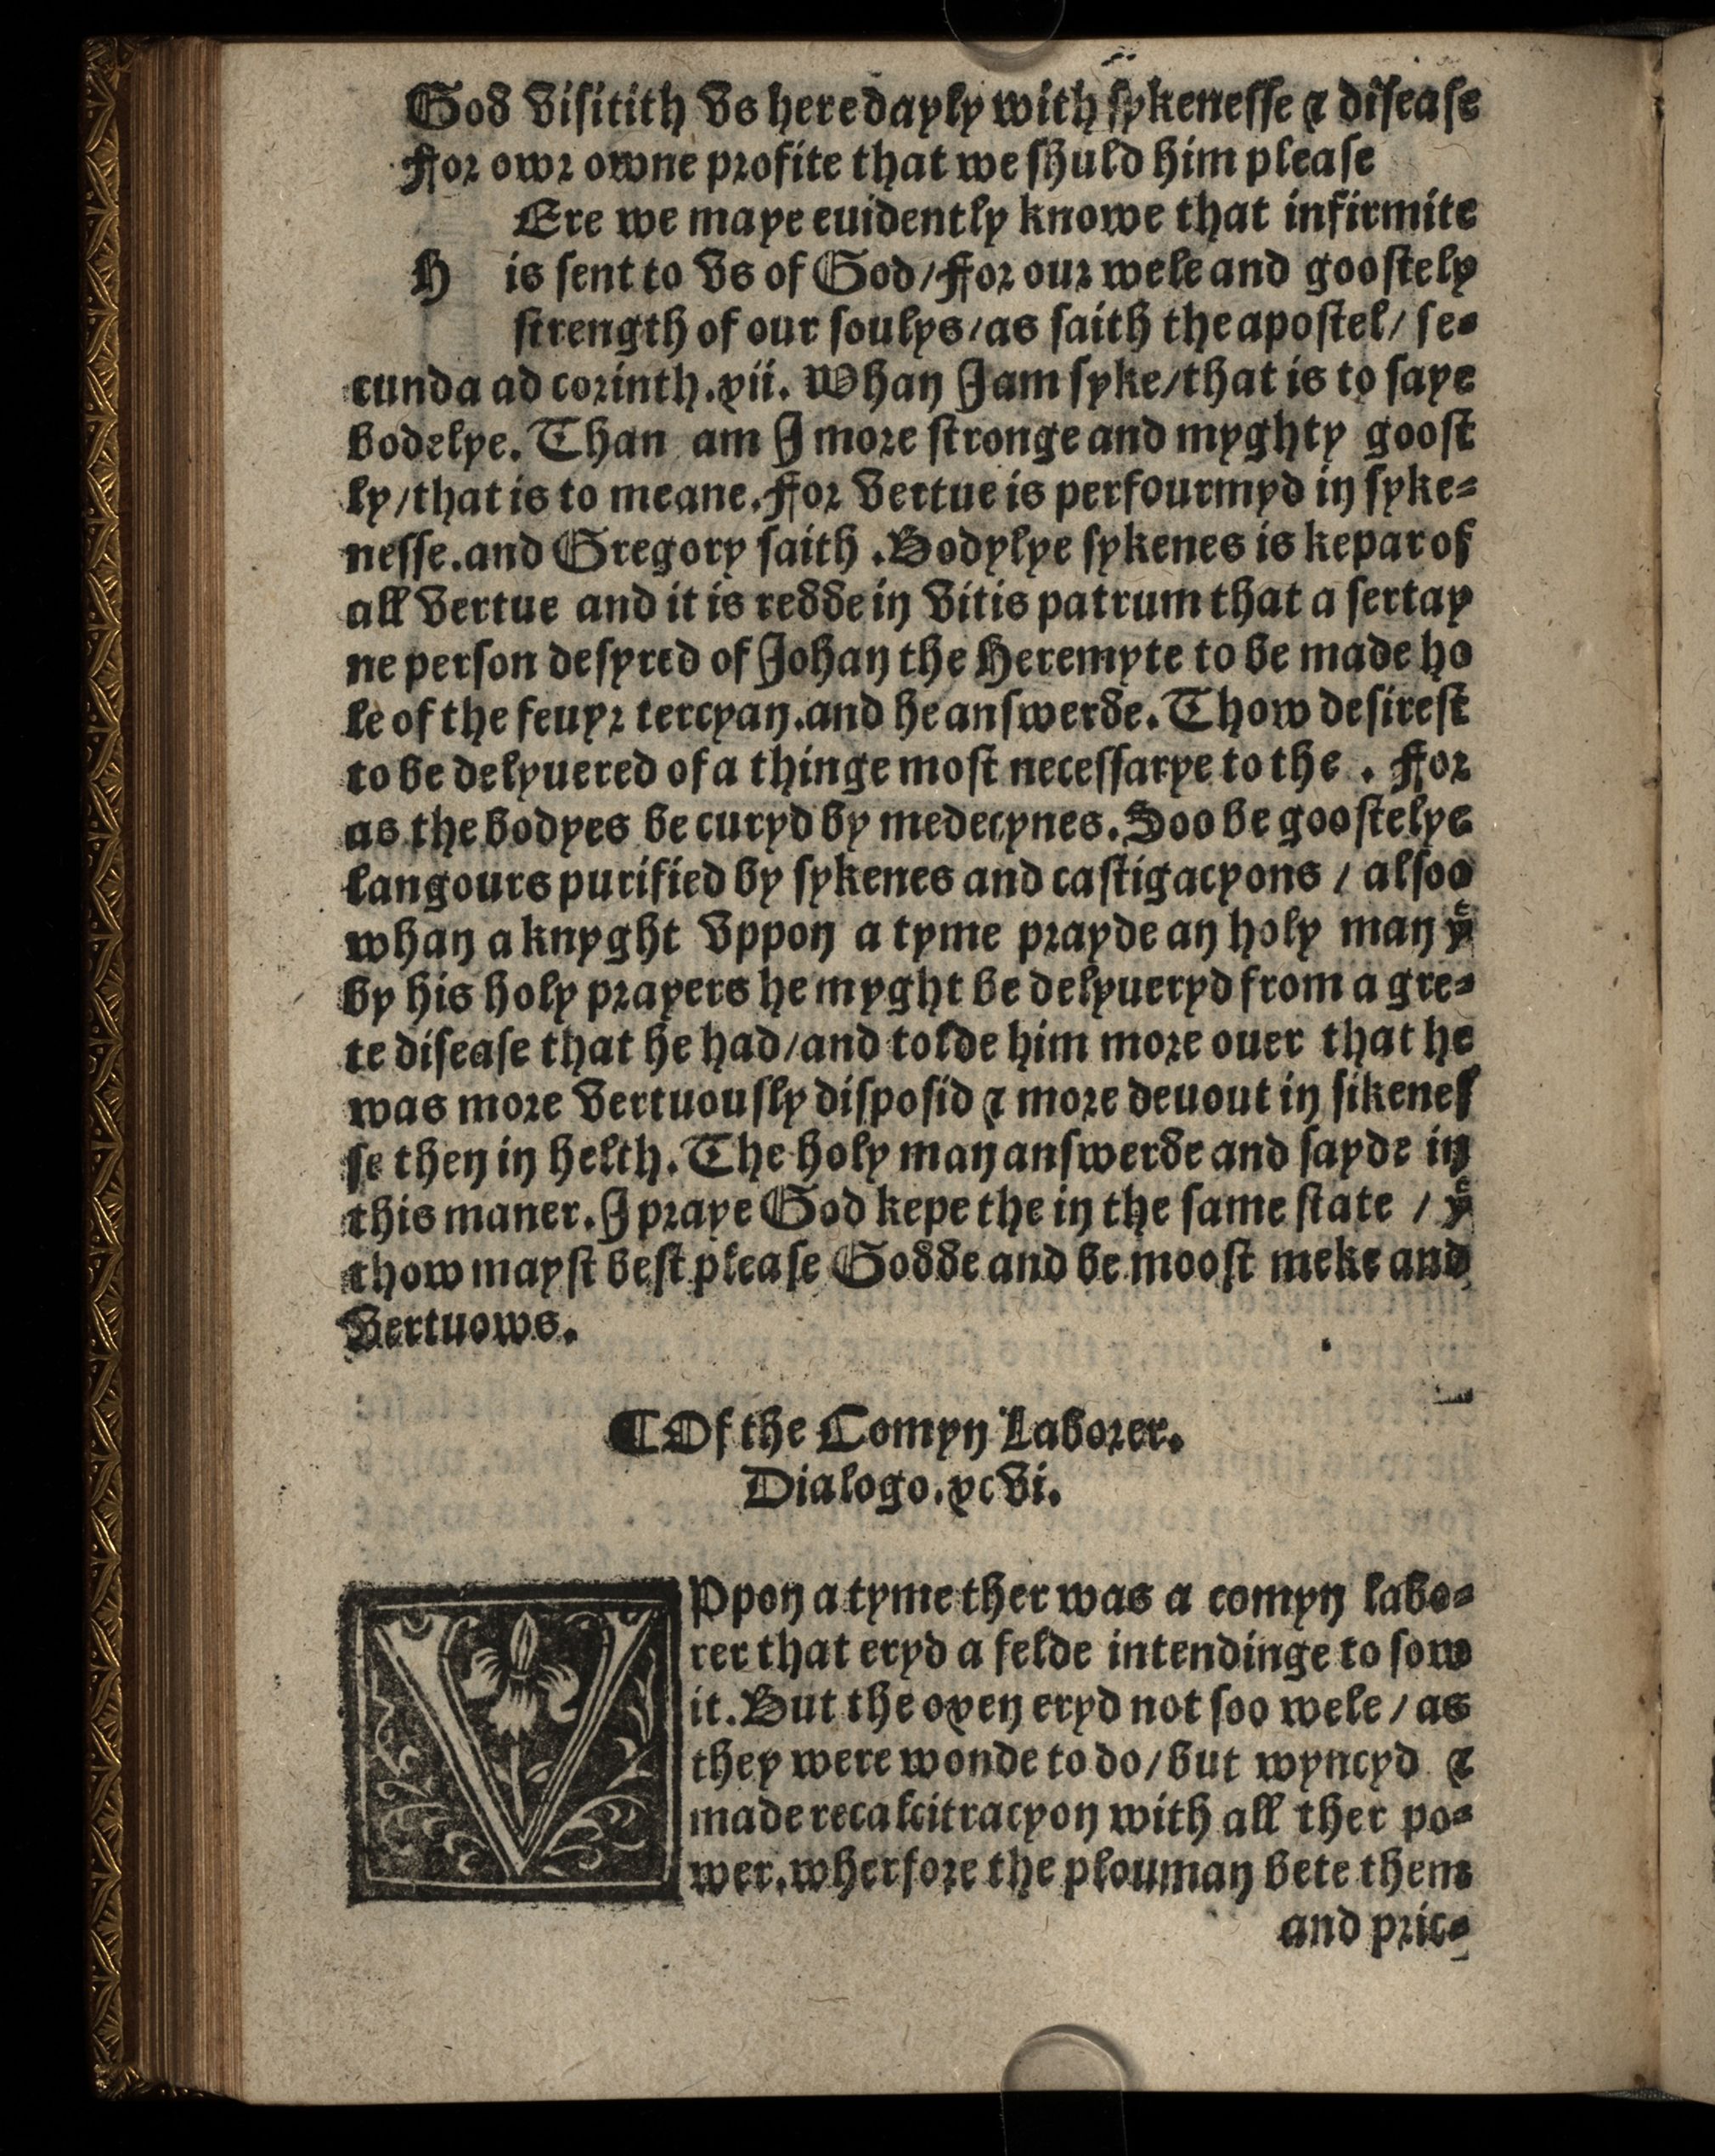 God visitith vs here dayly with sykenesse ⁊ disease
ffor owr owne profite that we shuld him please
Ere we maye euidently knowe that infirmite
H is sent to vs of God/ffor our wele and goostely
strength of our soulys/as saith the apostel/ se⸗
cunda ad corinth.xii. Whan J am syke/that is to saye
bodelye. Than am J more stronge and myghty goost
ly/that is to meane.ffor vertue is perfourmyd in syke⸗
nesse.and Gregory saith .Bodylye sykenes is kepar of
all vertue and it is redde in vitis patrum that a sertay
ne person desyred of Johan the Heremyte to be made ho
le of the feuyr tercyan.and he answerde.Thow desirest
to be delyuered of a thinge most necessarye to the . ffor
as the bodyes be curyd by medecynes.Soo be goostelye
langours purified by sykenes and castigacyons / alsoo
whan a knyght vppon a tyme prayde an holy man yͭ
by his holy prayers he myght be delyueryd from a gre⸗
te disease that he had/and tolde him more ouer that he
was more vertuously disposid ⁊ more deuout in sikenes
se then in helth.The holy man answerde and sayde in
this maner.J praye God kepe the in the same state / yͭ
thow mayst best please Godde and be moost meke and
vertuows.
¶Of the Comyn Laborer.
Dialogo.xcvi.
VPpon a tyme ther was a comyn labo⸗
rer that eryd a felde intendinge to sow
it.But the oxen eryd not soo wele/as
they were wonde to do/but wyncyd ⁊
made recalcitracyon with all ther po⸗
wer.wherfore the plouman bete them
and pric⸗